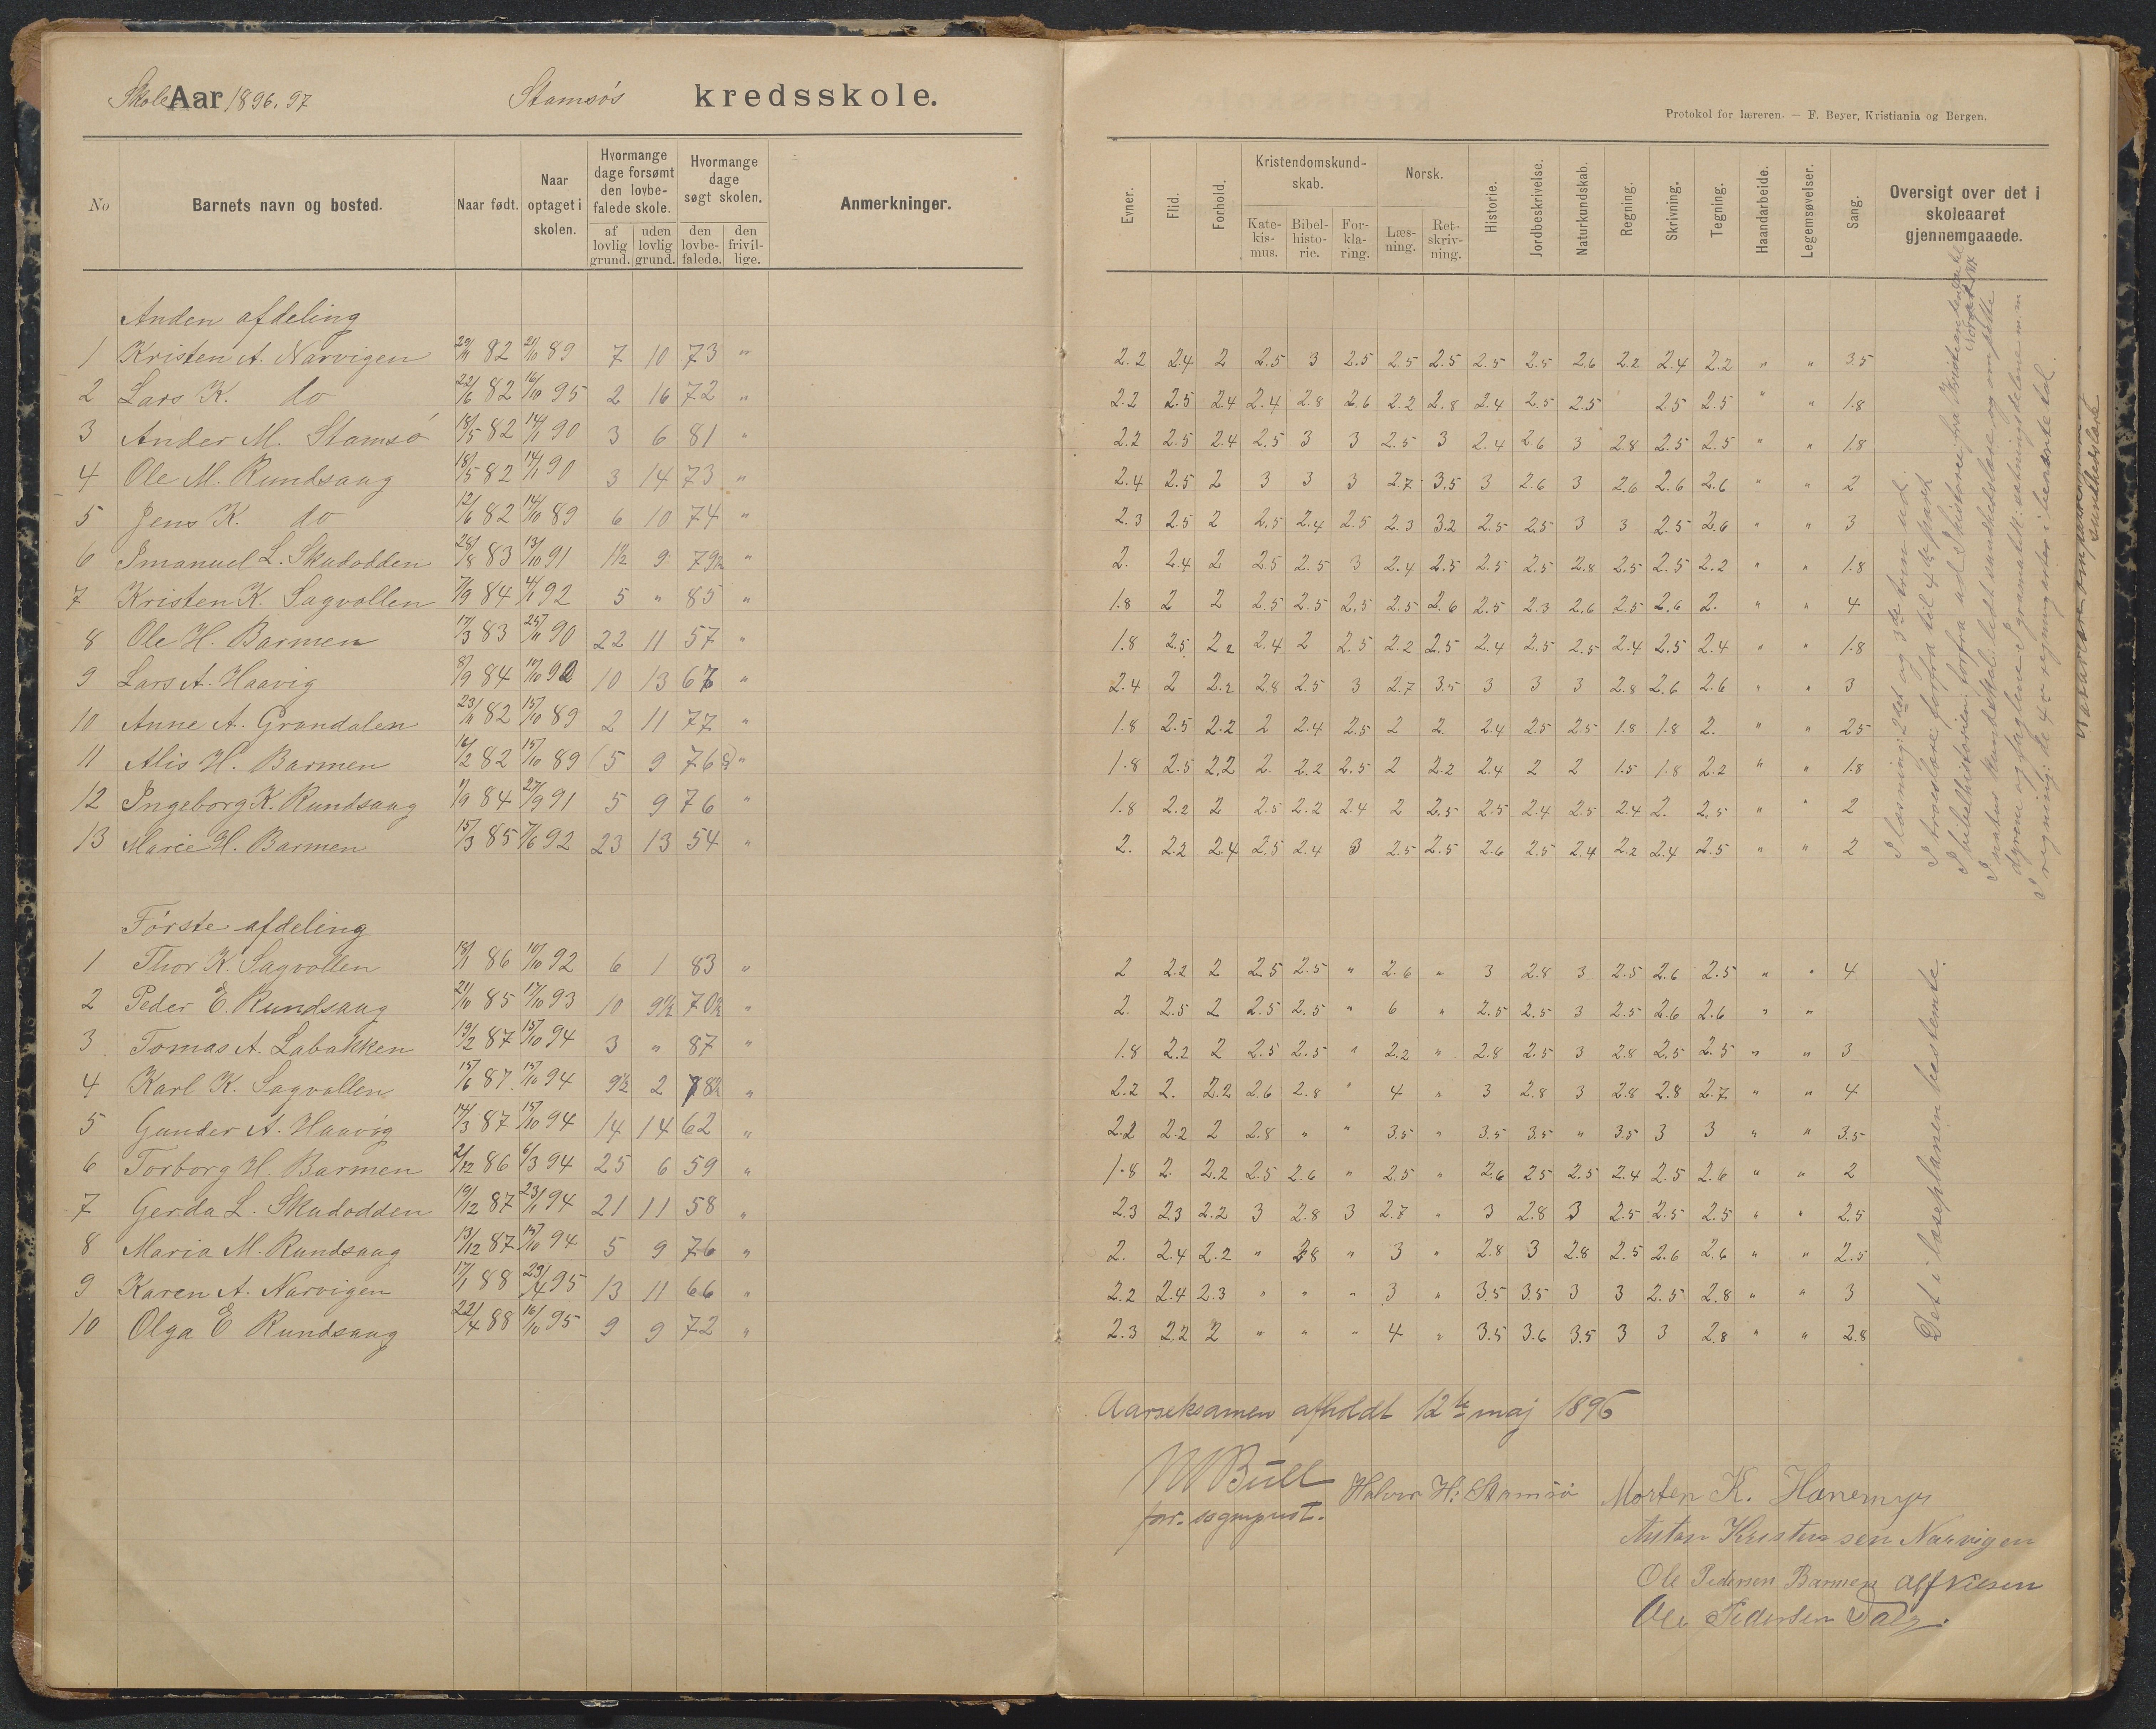 Skole Aar 1896.97 Stamsøs kredsskole.
Protokol for læreren. — F. Beyer, Kristiania og Bergen.
No Barnets navn og bosted. Naar født. Naar optaget i skolen. Hvormange dage forsømt den lovbefalede skole. af lovlig grund. uden lovlig grund. Hvormange dage søgt skolen. den lovbefalede. den frivillige. Anmerkninger.
Evner. Flid. Forhold. Kristendomskundskab. Katekismus. Bibelhistorie. Forklaring. Norsk. Læsning. Retskrivning. Historie. Jordbeskrivelse. Naturkundskab. Regning. Skrivning. Tegning. Haandarbeide. Legemsøvelser. Sang. Oversigt over det i skoleaaret gjennemgaaede.
Anden afdeling
1 Kristen A. Narvigen 29/11 82 21/10 89 7 10 73 " 2.2 2.4 2 2.5 3 2.5 2.5 2.5 2.5 2.5 2.6 2.2 2.4 2.2 " " 3.5
2 Lars K. do 22/6 82 16/10 95 2 16 72 " 2.2 2.5 2.4 2.4 2.8 2.6 2.2 2.8 2.4 2.5 2.5 2.5 2.5 " " 1.8
3 Ander M. Stamsø 18/5 82 14/1 90 3 6 81 " 2.2 2.5 2.4 2.5 3 3 2.5 3 2.4 2.6 3 2.8 2.5 2.5 " " 1.8
4 Ole M. Rundsaag 18/5 82 14/1 90 3 14 73 " 2.4 2.5 2 3 3 3 2.7 3.5 3 2.6 3 2.6 2.6 2.6 " " 2
5 Jens K. do 12/6 82 14/10 89 6 10 74 " 2.3 2.5 2 2.5 2.4 2.5 2.3 3.2 2.5 2.5 3 3 2.5 2.6 " " 3
6 Imanuel L. Skudodden 28/8 83 13/10 91 1½ 9 79½ " 2. 2.4 2 2.5 2.5 3 2.4 2.5 2.5 2.5 2.8 2.5 2.5 2.2 " " 1.8
7 Kristen K. Sagvollen 7/9 84 4/1 92 5 " 85 " 1.8 2 2 2.5 2.5 2.5 2.5 2.6 2.5 2.3 2.6 2.5 2.6 2. " " 4
8 Ole H. Barmen 17/3 83 25/11 90 22 11 57 " 1.8 2.5 2.2 2.4 2 2.5 2.2 2.5 2.4 2.5 2.5 2.4 2.5 2.4 " " 1.8
9 Lars A. Haavig 8/9 84 10 13 67 " 2.4 2 2.2 2.8 2.5 3 2.7 3.5 3 3 3 2.8 2.6 2.6 " " 3
10 Anne A. Grandalen 23/11 82 15/10 89 2 11 77 " 1.8 2.5 2.2 2 2.4 2.5 2 2. 2.4 2.5 2.5 1.8 1.8 2. " " 2.5
11 Alis H. Barmen 16/2 82 15/10 89 (5 9 76) " 1.8 2.5 2.2 2. 2.2 2.5 2 2.2 2.4 2 2 1.5 1.8 2.2 " " 1.8
12 Ingeborg K. Rundsaag 1/9 84 27/9 91 5 9 76 " 1.8 2.2 2 2.5 2.2 2.4 2 2.5 2.5 2.4 2.5 2.4 2. 2.5 " " 2
13 Marie H. Barmen 15/3 85 7/6 92 23 13 54 " 2. 2.2 2.4 2.5 2.4 3 2.5 2.5 2.6 2.5 2.4 2.2 2.4 2.5 " " 2
I læsning: 2det og 3de trin ud.
I troeslære forfra til 4de part
I bibelhistorien: forfra ud I historie: fra Kristian
Norge
I naturkundskab: lidt sundhedslære og om
dyrene og fuglene I gramatik:
I regning: de 4 regningsarter i benævnte tal.
Første afdeling
1 Thor K. Sagvollen 18/1 86 10/10 92 6 1 83 " 2 2.2 2 2.5 2.5 " 2.6 " 3 2.8 3 2.5 2.6 2.5 " " 4
2 Peder E. Rundsaag 21/10 85 17/10 93 10 9½ 70½ " 2. 2.5 2 2.5 2.5 " 6 " 2.5 2.5 3 2.5 2.6 2.6 " "
3 Tomas A. Labakken 19/2 87 15/10 94 3 " 87 " 1.8 2.2 2 2.5 2.5 " 2.2 " 2.8 2.5 3 2.8 2.5 2.5 " " 3
4 Karl K. Sagvollen 15/6 87. 15/10 94 9½ 2 78½ " 2.2 2. 2.2 2.6 2.8 " 4 " 3 2.8 3 2.8 2.8 2.7 " " 4
5 Gunder A. Haavig 14/3 87 15/10 94 14 14 62 " 2.2 2.2 2 2.8 " " 3.5 " 3.5 3.5 " 3.5 3 3 " " 3.5
6 Torborg H. Barmen 2/12 86 6/3 94 25 6 59 " 1.8 2. 2.2 2.5 2.6 " 2.5 " 2.6 2.5 2.5 2.4 2.5 2.6 " " 2
7 Gerda L. Skudodden 19/12 87 23/1 94 21 11 58 " 2.3 2.3 2.2 3 2.8 3 2.7 " 3 2.8 3 2.5 2.5 2.5 " " 2.5
8 Maria M. Rundsaag 13/12 87 15/10 94 5 9 76 " 2. 2.4 2.2 " 2.8 " 3 " 2.8 3 2.8 2.5 2.6 2.6 " " 2.5
9 Karen A. Narvigen 17/1 88 29/4 95 13 11 66 " 2.2 2.4 2.3 " " " 3 " 3.5 3.5 3 3 2.5 2.8 " " 3
10 Olga E Rundsaag 22/4 88 16/10 95 9 9 72 " 2.3 2.2 2 " " " 4 " 3.5 3.6 3.5 3 3 2.8 " " 2.8
Det i læseplanen bestemte.
Aarseksamen afholdt 12te maj 1896
Bull Halvor H. Stamsø Morten K. Hanemyr
for. sogneprest.
Anton Kristensen Narvigen
Ole Pedersen Barmen Alf Nilsen
Ole Pedersen